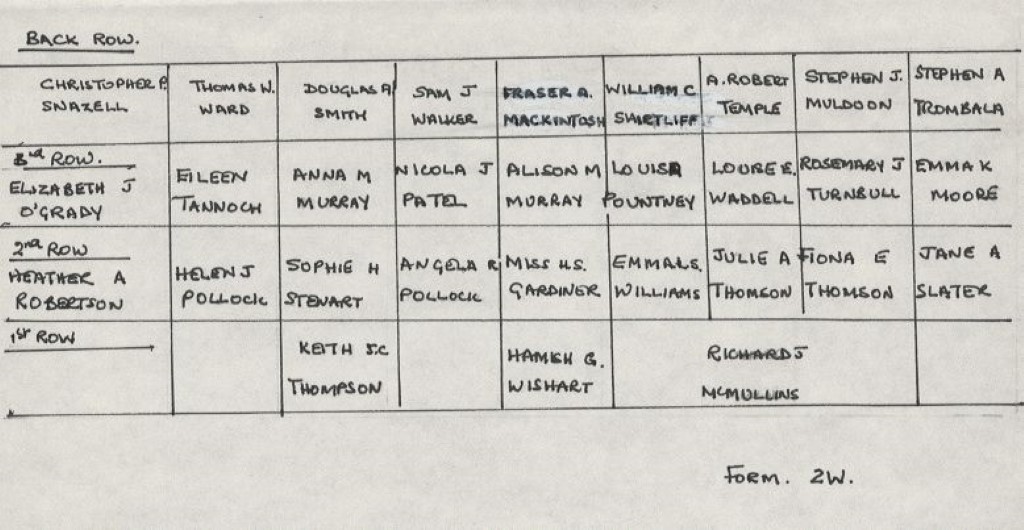 BACK ROW.
CHRISTOPHER P THOMAS W. DOUGLAS A SAM J FRASER A. WILLIAM C A. ROBERT STEPHEN J. STEPHEN A
SNAZELL WARD SMITH WALKER MACKINTOSH SHIRTLIFF TEMPLE MULDOON TROMBALA
3rd ROW.
ELIZABETH J EILEEN ANNA M NICOLA J ALISON M LOUISA LOUISE E. ROSEMARY J EMMA K
O'GRADY TANNOCH MURRAY PATEL MURRAY POUNTNEY WADDELL TURNBULL MOORE
2nd ROW
HEATHER A HELEN J SOPHIE H ANGELA R MISS H.S. EMMA L.S. JULIE A FIONA E JANE A
ROBERTSON POLLOCK STEWART POLLOCK GARDINER WILLIAMS THOMSON THOMSON SLATER
1st ROW
KEITH J.C HAMISH G. RICHARD J
THOMPSON WISHART McMULLINS
FORM. 2W.